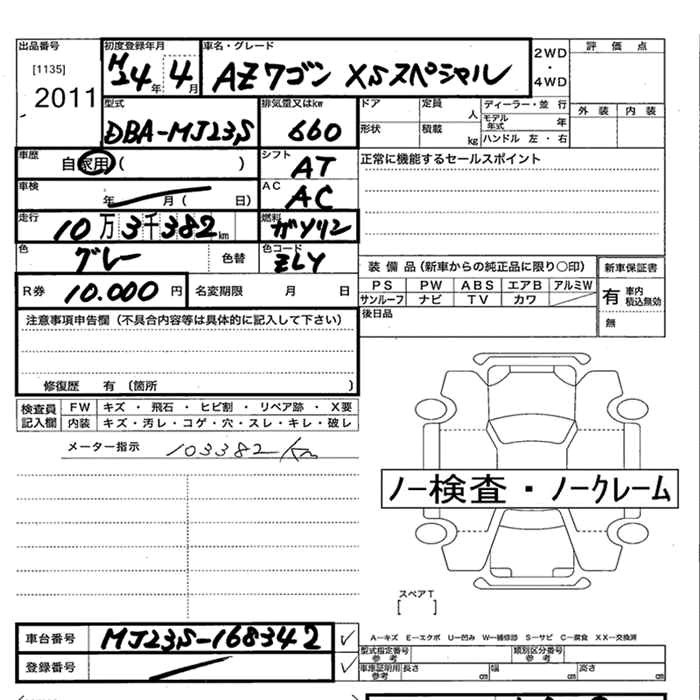 出品番号
[1135]
2011
初度登録年月
H24年 4月
車名・グレード
AZワゴン XSスペシャル
2WD
・
4WD
評価点
外装 内装
型式
DBA-MJ23S
排気量又はkw
660
ドア
定員 人
形状
積載 kg
ディーラー・並行
モデル年式 年
ハンドル 左・右
車歴
自家用( )
シフト
AT
正常に機能するセールスポイント
車検
年 月( 日)
AC
AC
走行
10万3千382km
燃料
ガソリン
色
グレー
色替
色コード
ZLY
装備品(新車からの純正品に限り○印)
新車保証書
PS PW ABS エアB アルミW
サンルーフ ナビ TV カワ
有 車内積込無効
無
R券 10.000円
名変期限 月 日
後日品
注意事項申告欄(不具合内容等は具体的に記入して下さい)
修復歴 有(箇所 )
検査員記入欄
FW キズ・飛石・ヒビ割・リペア跡・X要
内装 キズ・汚レ・コゲ・穴・スレ・キレ・破レ
メーター指示 103382km
ノー検査・ノークレーム
スペアT
[ ]
車台番号 MJ23S-168342
登録番号
A-キズ E-エクボ U-凹み W-補修跡 S-サビ C-腐食 XX-交換済
型式指定番号 参考
類別区分番号 参考
車庫証明用 参考 長さ cm 幅 cm 高さ cm